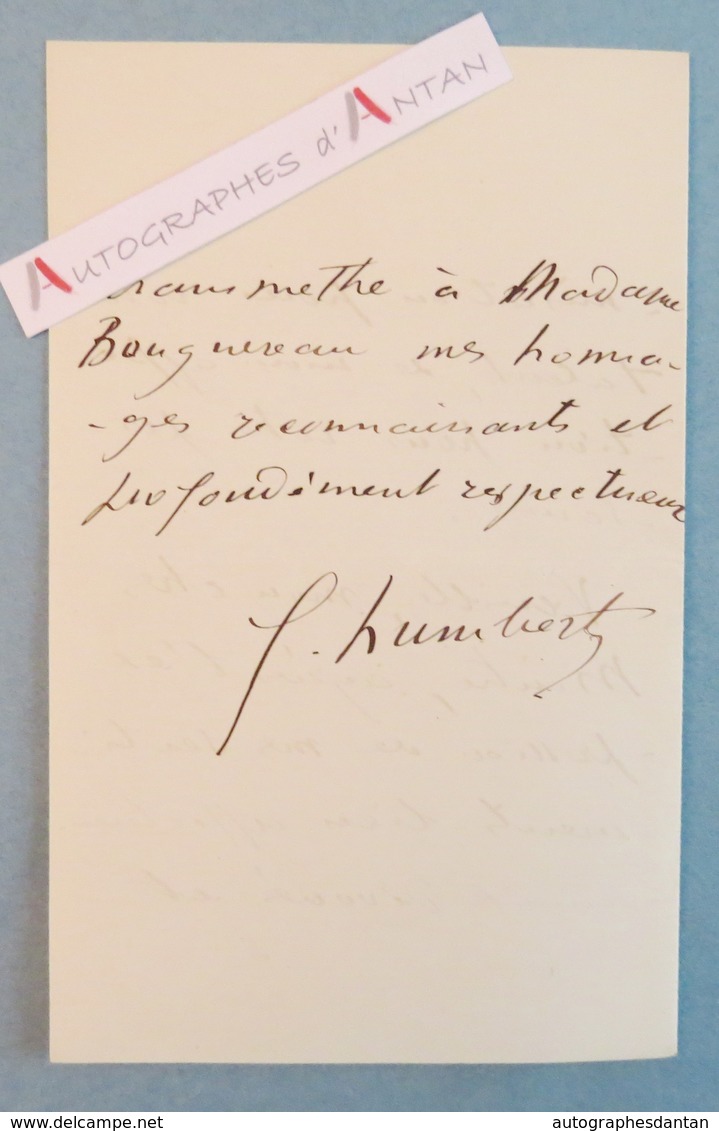 AUTOGRAPHES d'ANTAN
transmettre à Madame
Bouguereau mes homma-
-ges reconnaissants et
profondément respectueux
J. Humbert
www.delcampe.net
autographesdantan